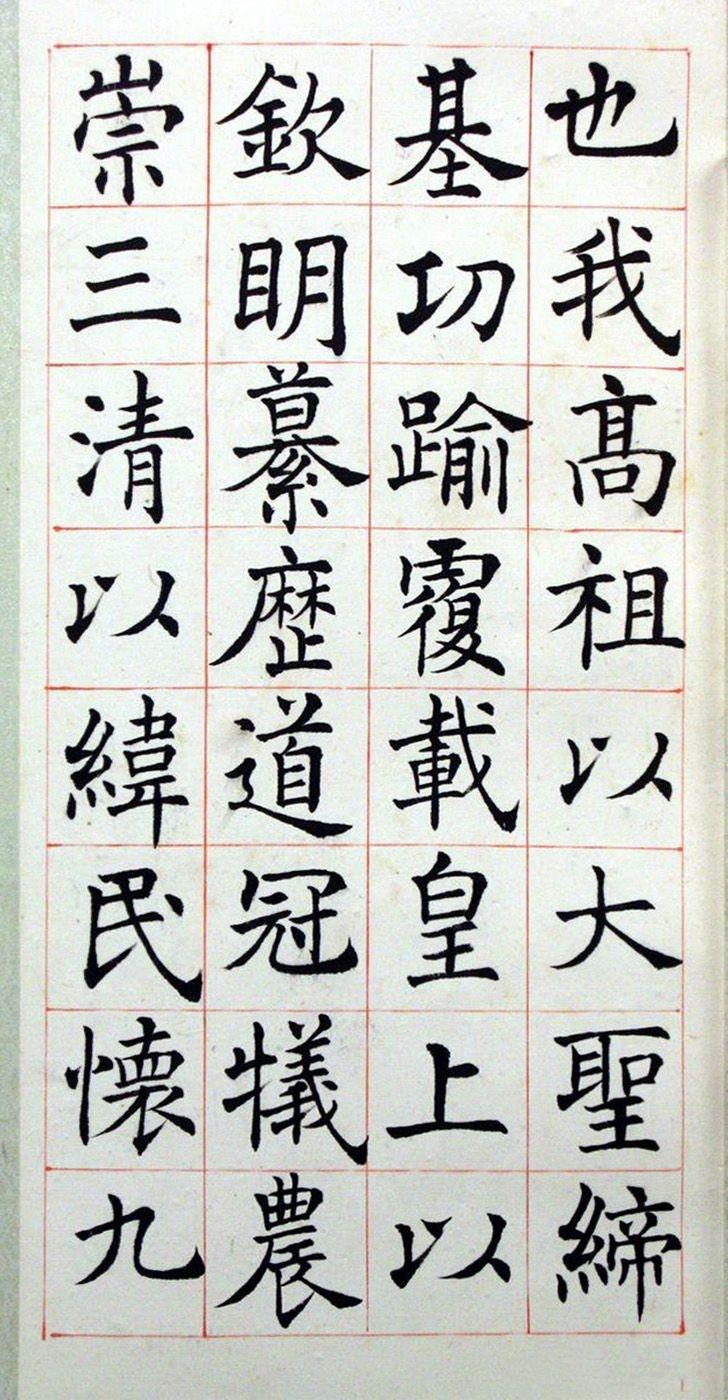 也我高祖以大聖締
基功踰覆載皇上以
欽明纂歷道冠犧農
崇三清以緯民懷九